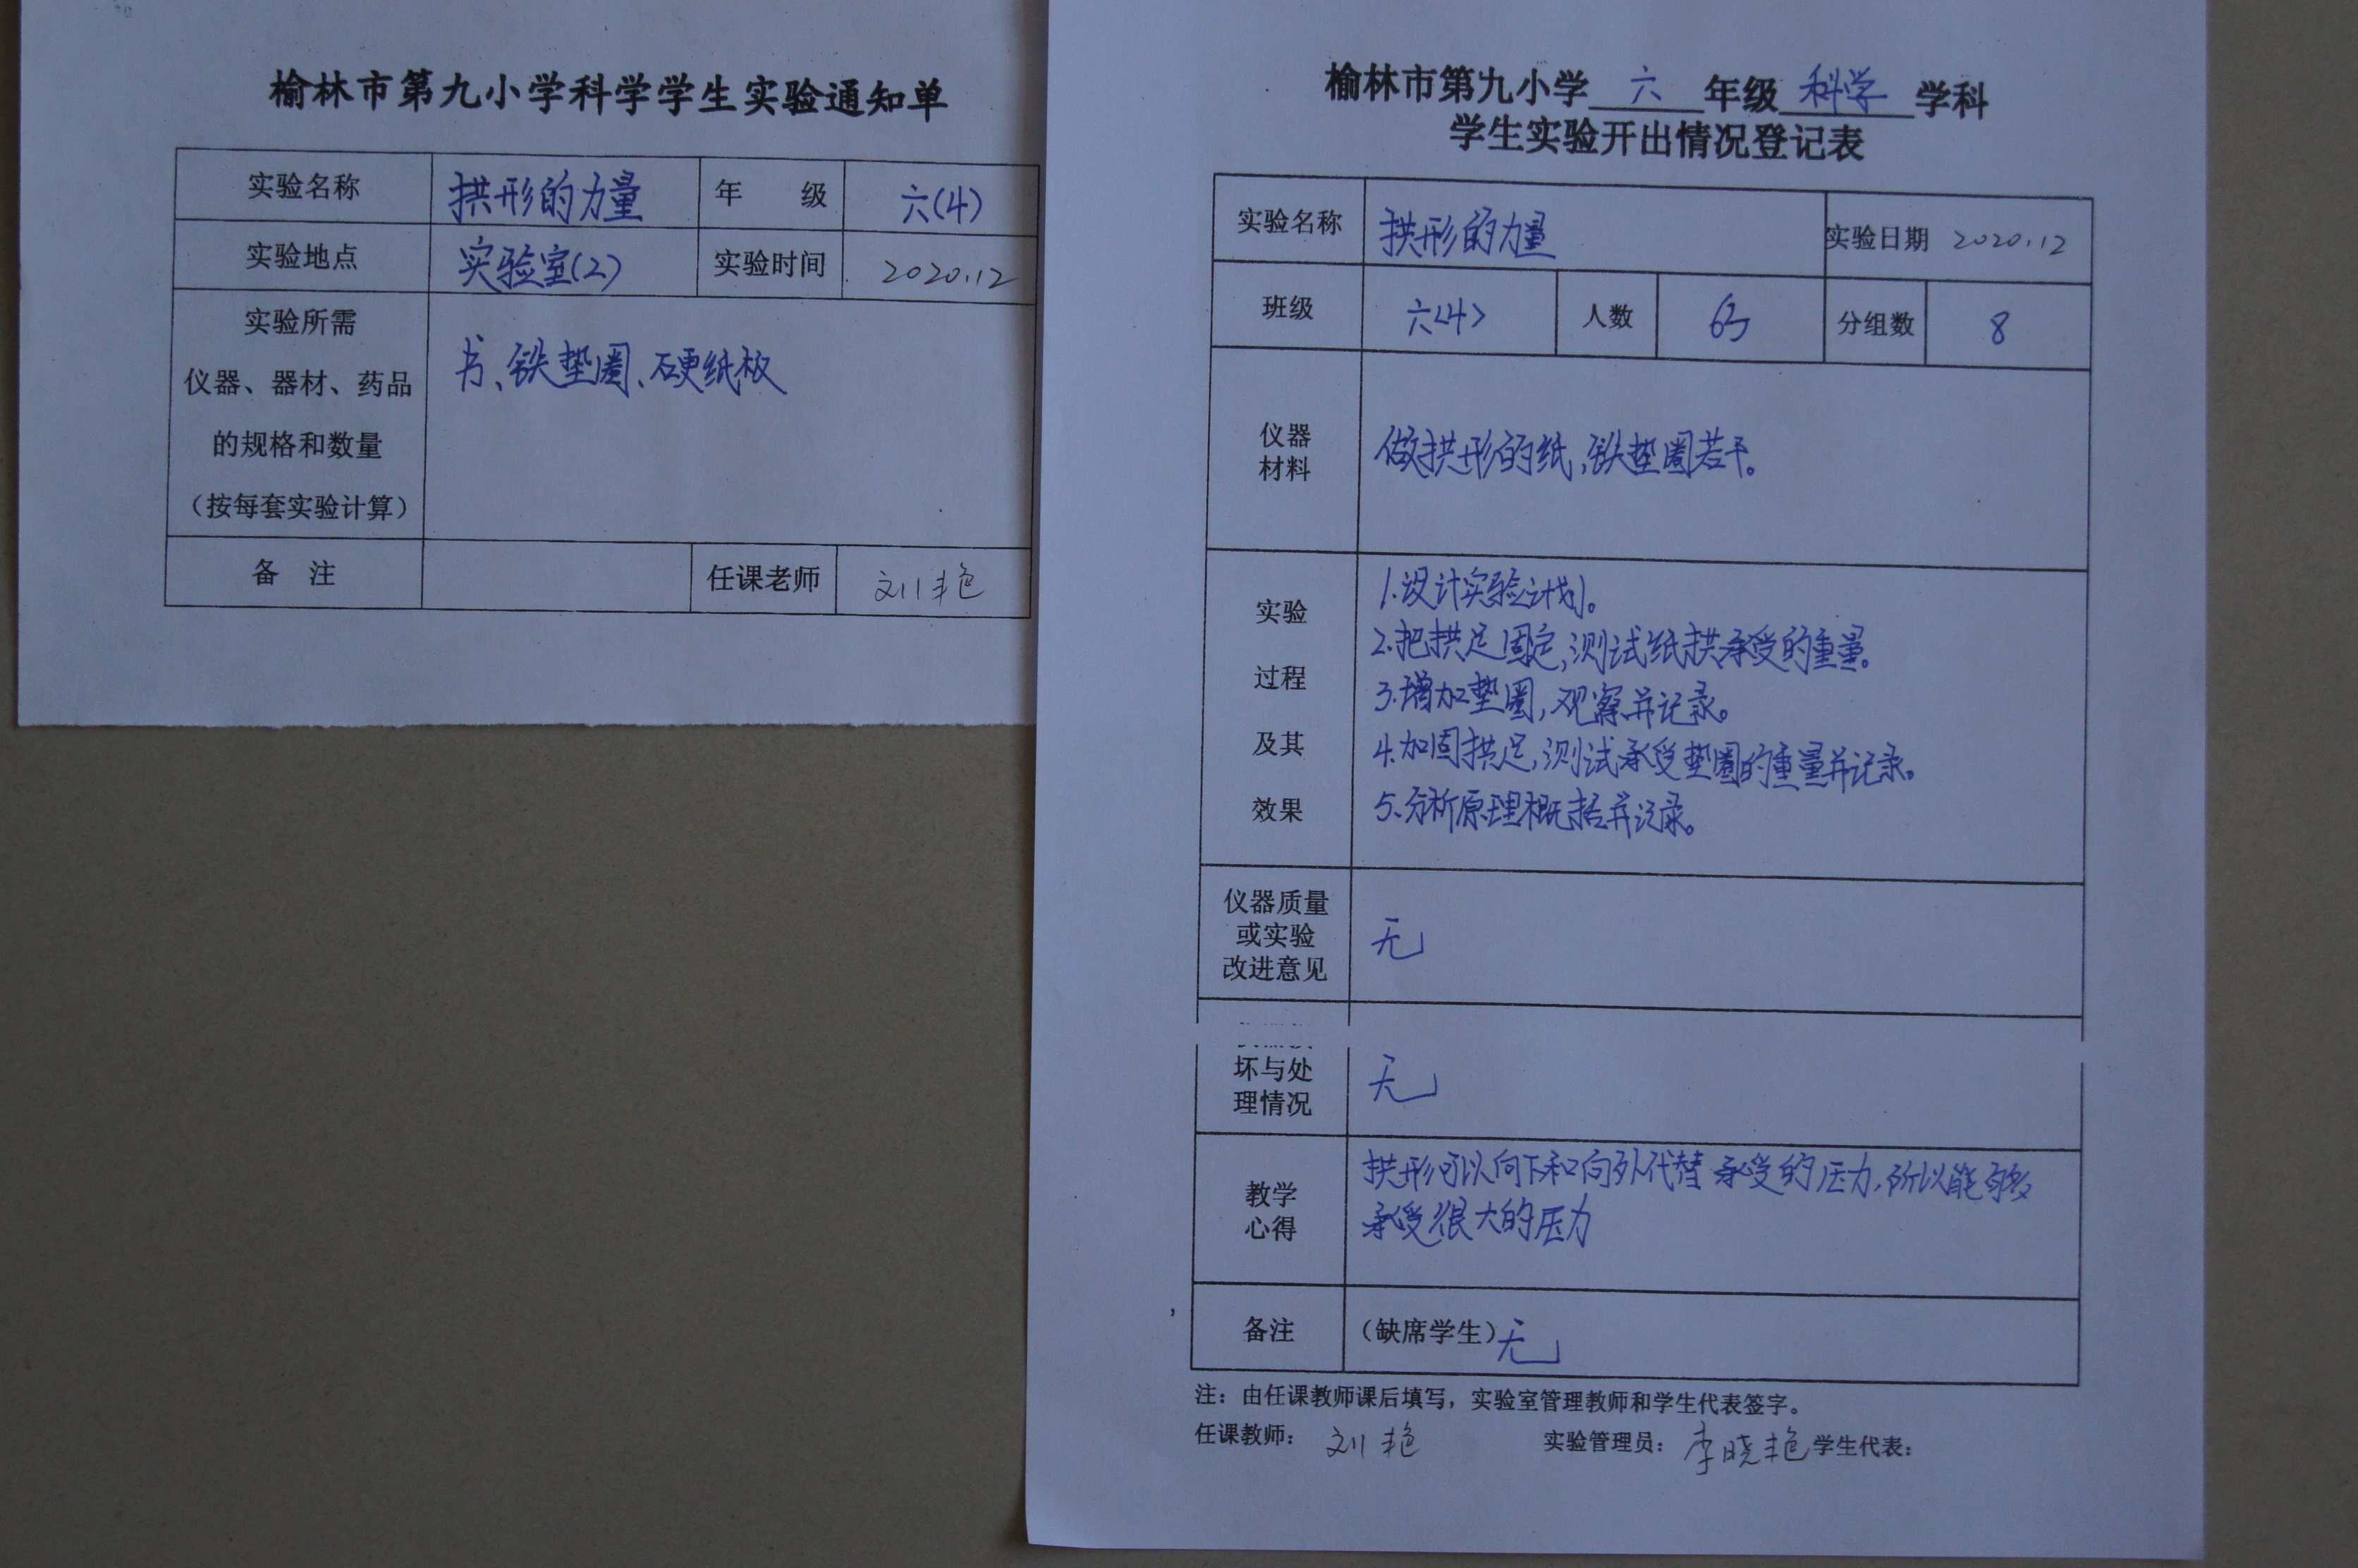 榆林市第九小学科学学生实验通知单
实验名称 拱形的力量 年 级 六(4)
实验地点 实验室(2) 实验时间 2020.12
实验所需
仪器、器材、药品
的规格和数量
(按每套实验计算)
书、铁垫圈、硬纸板
备 注 任课老师 刘艳
榆林市第九小学 六 年级 科学 学科
学生实验开出情况登记表
实验名称 拱形的力量 实验日期 2020.12
班级 六<4> 人数 分组数 8
仪器
材料
做拱形的纸,铁垫圈若干。
实验
过程
及其
效果
1.设计实验计划。
2.把拱足固定,测试纸拱承受的重量。
3.增加垫圈,观察并记录。
4.加固拱足,测试承受垫圈的重量并记录。
5.分析原理概括并记录。
仪器质量
或实验
改进意见
无
坏与处
理情况
无
教学
心得
拱形可以向下和向外代替承受的压力,所以能够
承受很大的压力
备注 (缺席学生)无
注:由任课教师课后填写,实验室管理教师和学生代表签字。
任课教师: 刘艳 实验管理员: 李晓艳 学生代表: